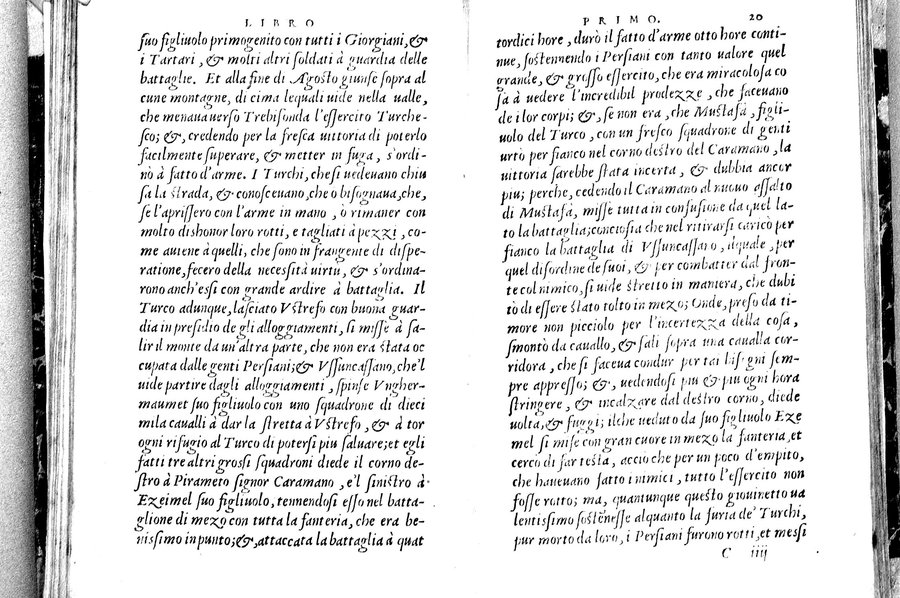 LIBRO
suo figliuolo primogenito con tutti i Giorgiani, &
i Tartari, & molti altri soldati à guardia delle
battaglie. Et alla fine di Agosto giunse sopra al
cune montagne, di cima lequali uide nella ualle,
che menaua uerso Trebisonda l'essercito Turche-
sco; &, credendo per la fresca uittoria di poterlo
facilmente superare, & metter in fuga, s'ordi-
nò à fatto d'arme. I Turchi, che si uedeano chiu
sa la strada, & conosceuano, che o bisognaua, che,
se l'aprissero con l'arme in mano, ò rimaner con
molto dishonor loro rotti, e tagliati à pezzi, co-
me auiene à quelli, che sono in frangente di dispe-
ratione, fecero della necessità uirtu, & s'ordina-
rono anch'essi con grande ardire à battaglia. Il
Turco adunque, lasciato Vstrefo con buona guar-
dia in presidio de gli alloggiamenti, si misse à sa-
lir il monte da un'altra parte, che non era stata oc
cupata dalle genti Persiani; & Vssuncassano, che'l
uide partire dagli alloggiamenti, spinse Vngher-
maumet suo figliuolo con uno squadrone di dieci
mila caualli à dar la stretta à Vstrefo, & à tor
ogni rifugio al Turco di potersi piu saluare; et egli
fatti tre altri grossi squadroni diede il corno de-
stro à Pirameto signor Caramano, e'l sinistro à
Ezeimel suo figliuolo, tennendosi esso nel batta-
glione di mezo con tutta la fanteria, che era be-
nissimo in punto; &, attaccata la battaglia à quat
PRIMO. 20
tordici hore, durò il fatto d'arme otto hore conti-
nue, sostennendo i Persiani con tanto ualore quel
grande, & grosso essercito, che era miracolosa co
sa à uedere l'incredibil prodezze, che faceuano
de i lor corpi; &, se non era, che Mustafà, figli-
uolo del Turco, con un fresco squadrone di genti
urtò per fianco nel corno destro del Caramano, la
uittoria sarebbe stata incerta, & dubbia ancor
piu; perche, cedendo il Caramano al nuouo assalto
di Mustafà, misse tutta in confusione da quel la-
to la battaglia; conciosia che nel ritirarsi caricò per
fianco la battaglia di Vssuncassano, ilquale, per
quel disordine de suoi, & per combatter dal fron-
te col nimico, si uide stretto in maniera, che dubi
tò di essere stato tolto in mezo; Onde, preso da ti-
more non picciolo per l'incertezza della cosa,
smontò da cauallo, & salì sopra una caualla cor-
ridora, che si faceua condur per tai bisogni sem-
pre appresso; &, uedendosi piu & piu ogni hora
stringere, & incalzare dal destro corno, diede
uolta, & fuggì; ilche ueduto da suo figliuolo Eze
mel si mise con gran cuore in mezo la fanteria, et
cercò di far testa, acciò che per un poco d'empito,
che haueuano fatto i nimici, tutto l'essercito non
fosse rotto; ma, quantunque questo giouinetto ua
lentissimo sostenesse alquanto la furia de' Turchi,
pur morto da loro, i Persiani furono rotti, et messi
C iiij